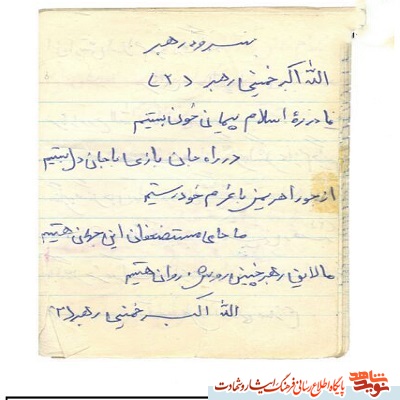 سرود رهبر
الله اکبر خمینی رهبر (۲)
ما در ره اسلام پیمان خون بستیم
در راه جان بازی با جان دل بستیم
از جور اهریمن با عزم خود رستیم
ما حامی مستضعفان این جهان هستیم
ما لایق رهبر خمینی روان هستیم
الله اکبر خمینی رهبر (۲)
نوید شاهد پایگاه اطلاع رسانی فرهنگ ایثار و شهادت